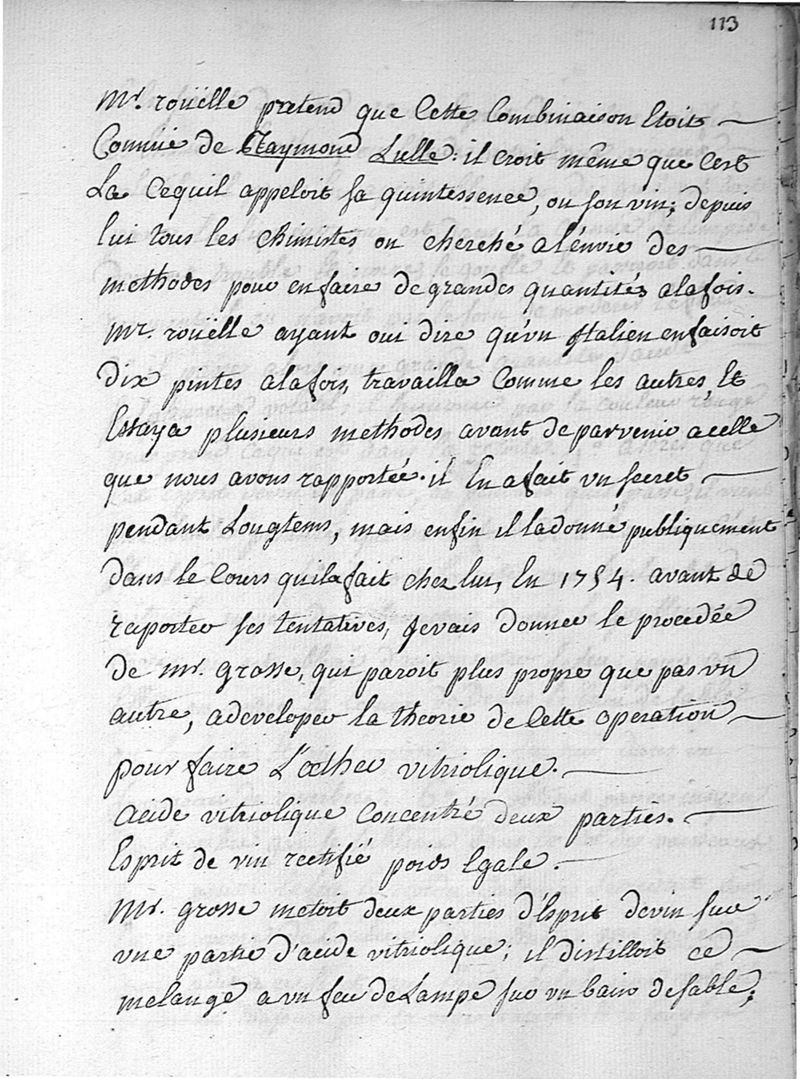 113
Mr. roüelle pretend que Cette Combinaison Etoit
Connüe de Raymond Lulle: il croit même que C'est
La Cequil appeloit sa quintessence, ou son vin; depuis
lui tous les Chimistes on cherché a l'envie des
methodes pour en faire de grandes quantités alafois.
Mr. roüelle ayant oui dire qu'un Italien enfaisoit
Dix pintes alafois, travailla Comme les autres, Et
Essaya plusieurs methodes avant de parvenir acelle
que nous avons rapportée. il En afait un secret
pendant Longtems, mais enfin il ladonné publiquement
dans le Cours quilafait chez lui, En 1754. avant de
raporter ses tentatives, Jevais donner le procedée
de Mr. grosse, qui paroit plus propre que pas un
autre, adeveloper la theorie de Cette operation
pour faire L'æther vitriolique.
Acide vitriolique Concentré deux parties.
Esprit de vin rectifié poids Egale.
Mr. grosse metoit deux parties d'Esprit devin sur
une partie d'acide vitriolique; il distilloit ce
melange a un feu de Lampe sur un bain de sable;